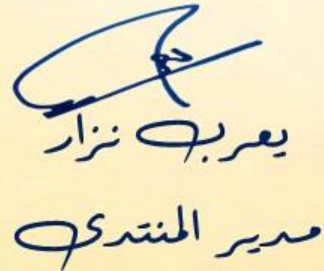 يعرب نزار
مدير المنتدى